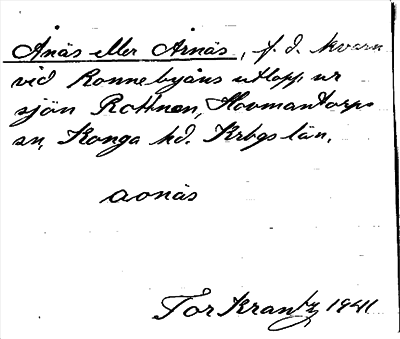 Ånäs eller Årnäs, f.d. kvarn
vid Ronnebyåns utlopp ur
sjön Rottnen, Hovmantorps
sn, Konga hd. Krbgs län.
aonäs
Tor Krantz 1941